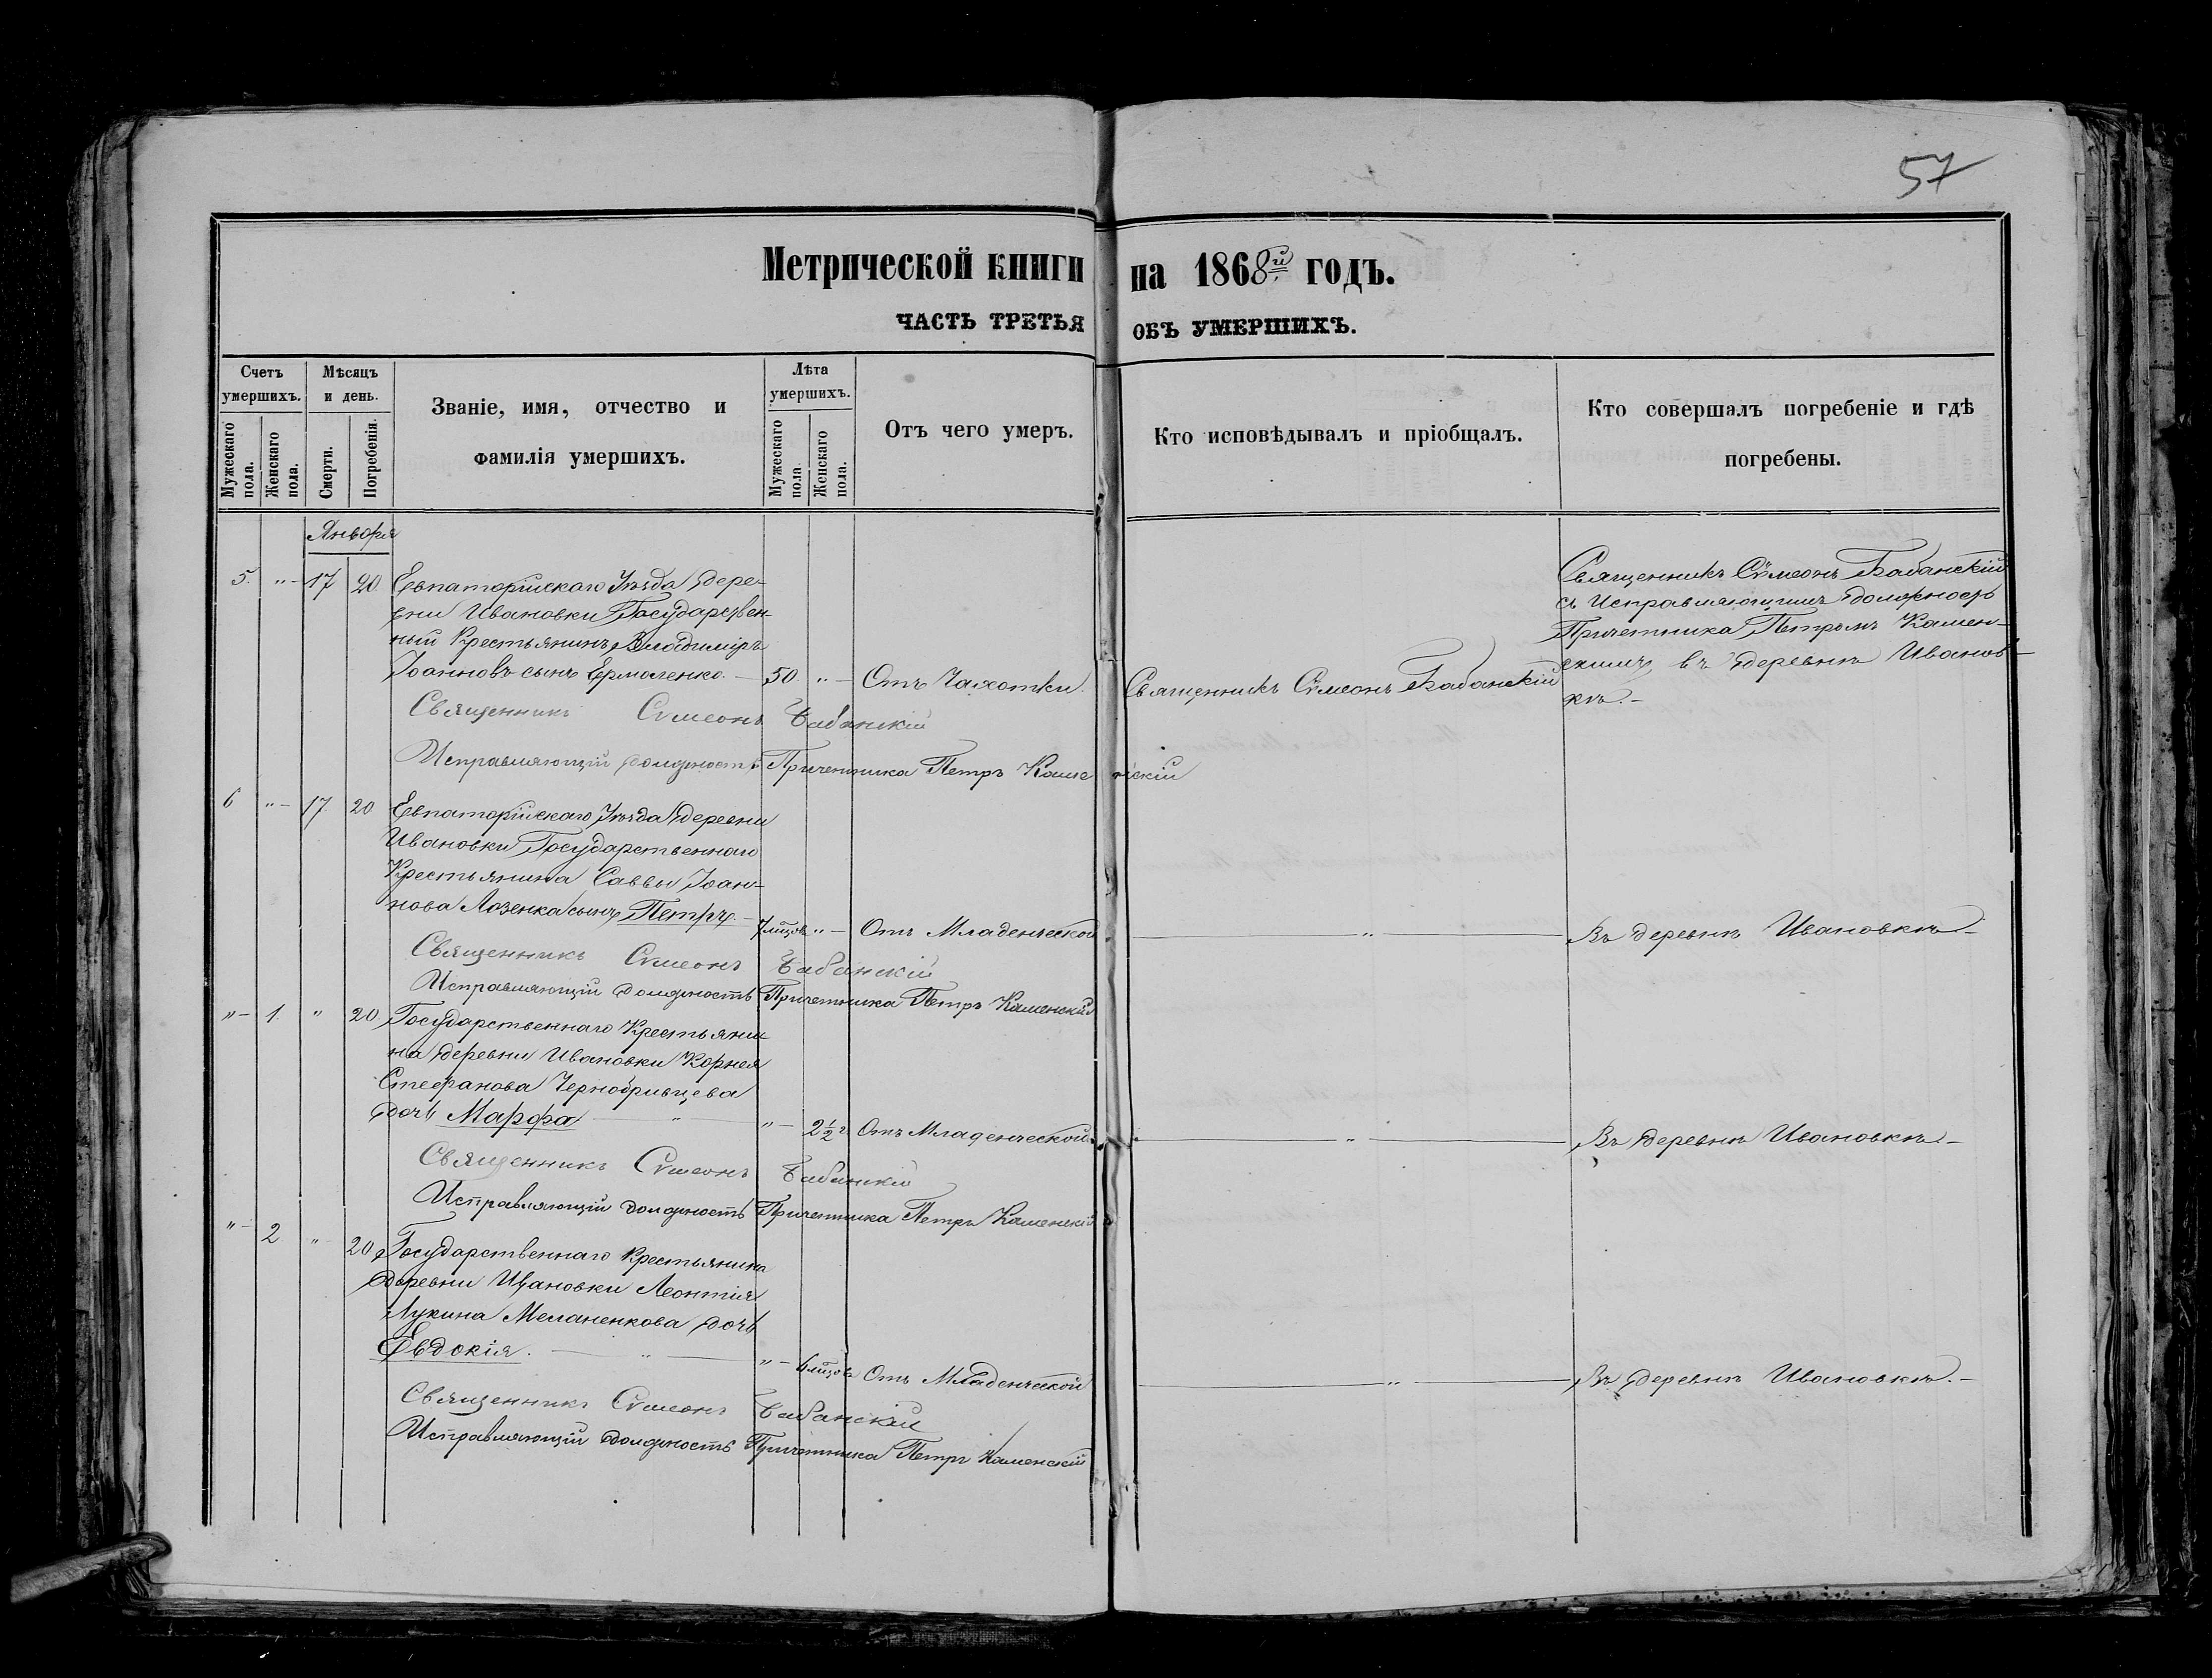 57
Метрической книги на 1868й годъ.
ЧАСТЬ ТРЕТЬЯ ОБЪ УМЕРШИХЪ.
Счетъ умершихъ.
Мужескаго пола.
Женскаго пола.
Мѣсяцъ и день.
Смерти.
Погребенія.
Званіе, имя, отчество и
фамилія умершихъ.
Лѣта умершихъ.
Мужескаго пола.
Женскаго пола.
Отъ чего умеръ.
Кто исповѣдывалъ и пріобщалъ.
Кто совершалъ погребеніе и гдѣ
погребены.
Января
5. „ 17 20 Евпаторійскаго Уѣзда дере-
вни Ивановки Государствен-
ный Крестьянинъ Владиміръ
Іоанновъ сынъ Ермоленко. — 50 „ — Отъ Чахотки. Священникъ Сѵмеонъ Бабанскій
Священникъ Сѵмеонъ Бабанскій
съ Исправляющимъ должность
Причетника Петромъ Камен-
скимъ въ деревнѣ Иванов-
кѣ. —
Священникъ Сѵмеонъ Бабанскій
Исправляющій должность Причетника Петръ Каменскій
6 „ — 17. 20 Евпаторійскаго Уѣзда деревни
Ивановки Государственнаго
Крестьянина Саввы Іоан-
нова Лозенка сынъ Петръ. — 7 мцовъ „ — Отъ Младенческой — „ — Въ деревнѣ Ивановкѣ —
Священникъ Сѵмеонъ Бабанскій
Исправляющій должность Причетника Петръ Каменскій
„ — 1. „ 20. Государственнаго Крестьяни-
на деревни Ивановки Корнея
Стефанова Чернобривцева
дочь Марфа — „ — „ — 2½ г. Отъ Младенческой. — „ — Въ деревнѣ Ивановкѣ. —
Священникъ Сѵмеонъ Бабанскій
Исправляющій должность Причетника Петръ Каменскій
„ — 2. „ 20 Государственнаго Крестьянина
деревни Ивановки Леонтія
Лукина Меланенкова дочь
Евдокія. — „ — „ — 6 мцовъ Отъ Младенческой — „ — Въ деревнѣ Ивановкѣ. —
Священникъ Сѵмеонъ Бабанскій
Исправляющій должность Причетника Петръ Каменскій